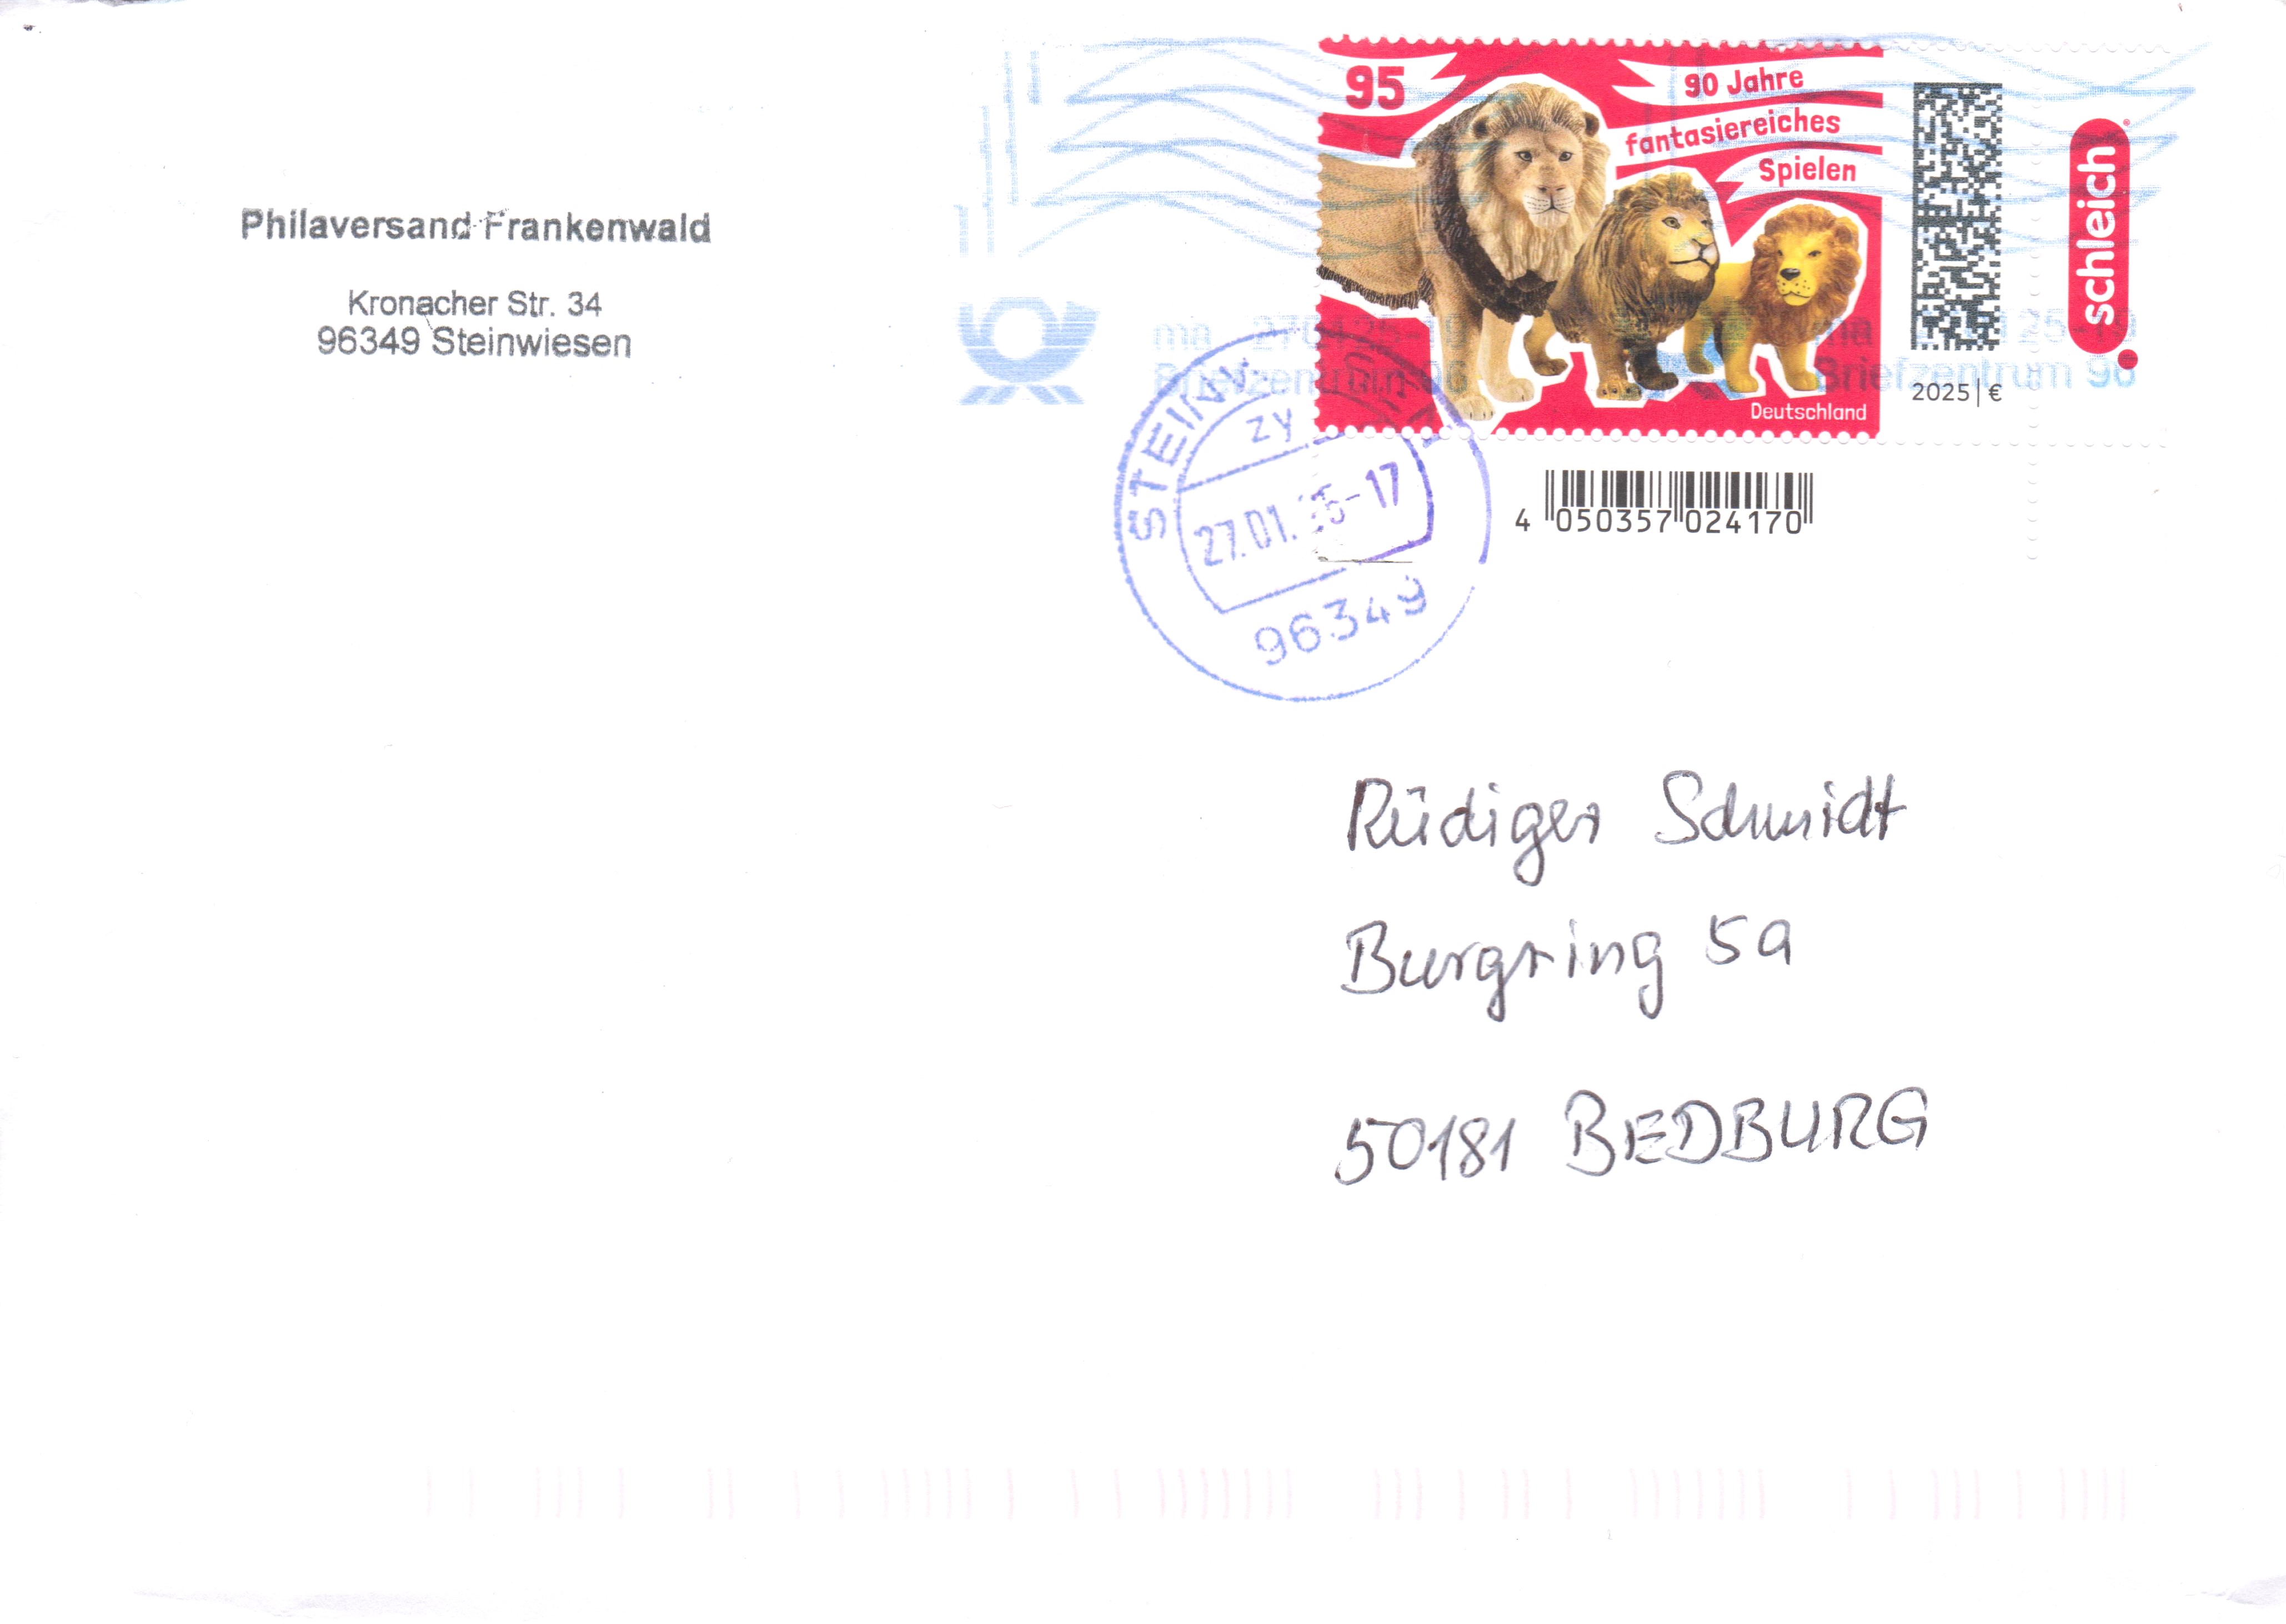 Philaversand Frankenwald
Kronacher Str. 34
96349 Steinwiesen
95
90 Jahre
fantasiereiches
Spielen
Deutschland
2025 | €
schleich
4 050357 024170
Briefzentrum 96
Briefzentrum 96
zy
27.01. -17
96349
Rüdiger Schmidt
Burgring 5a
50181 BEDBURG